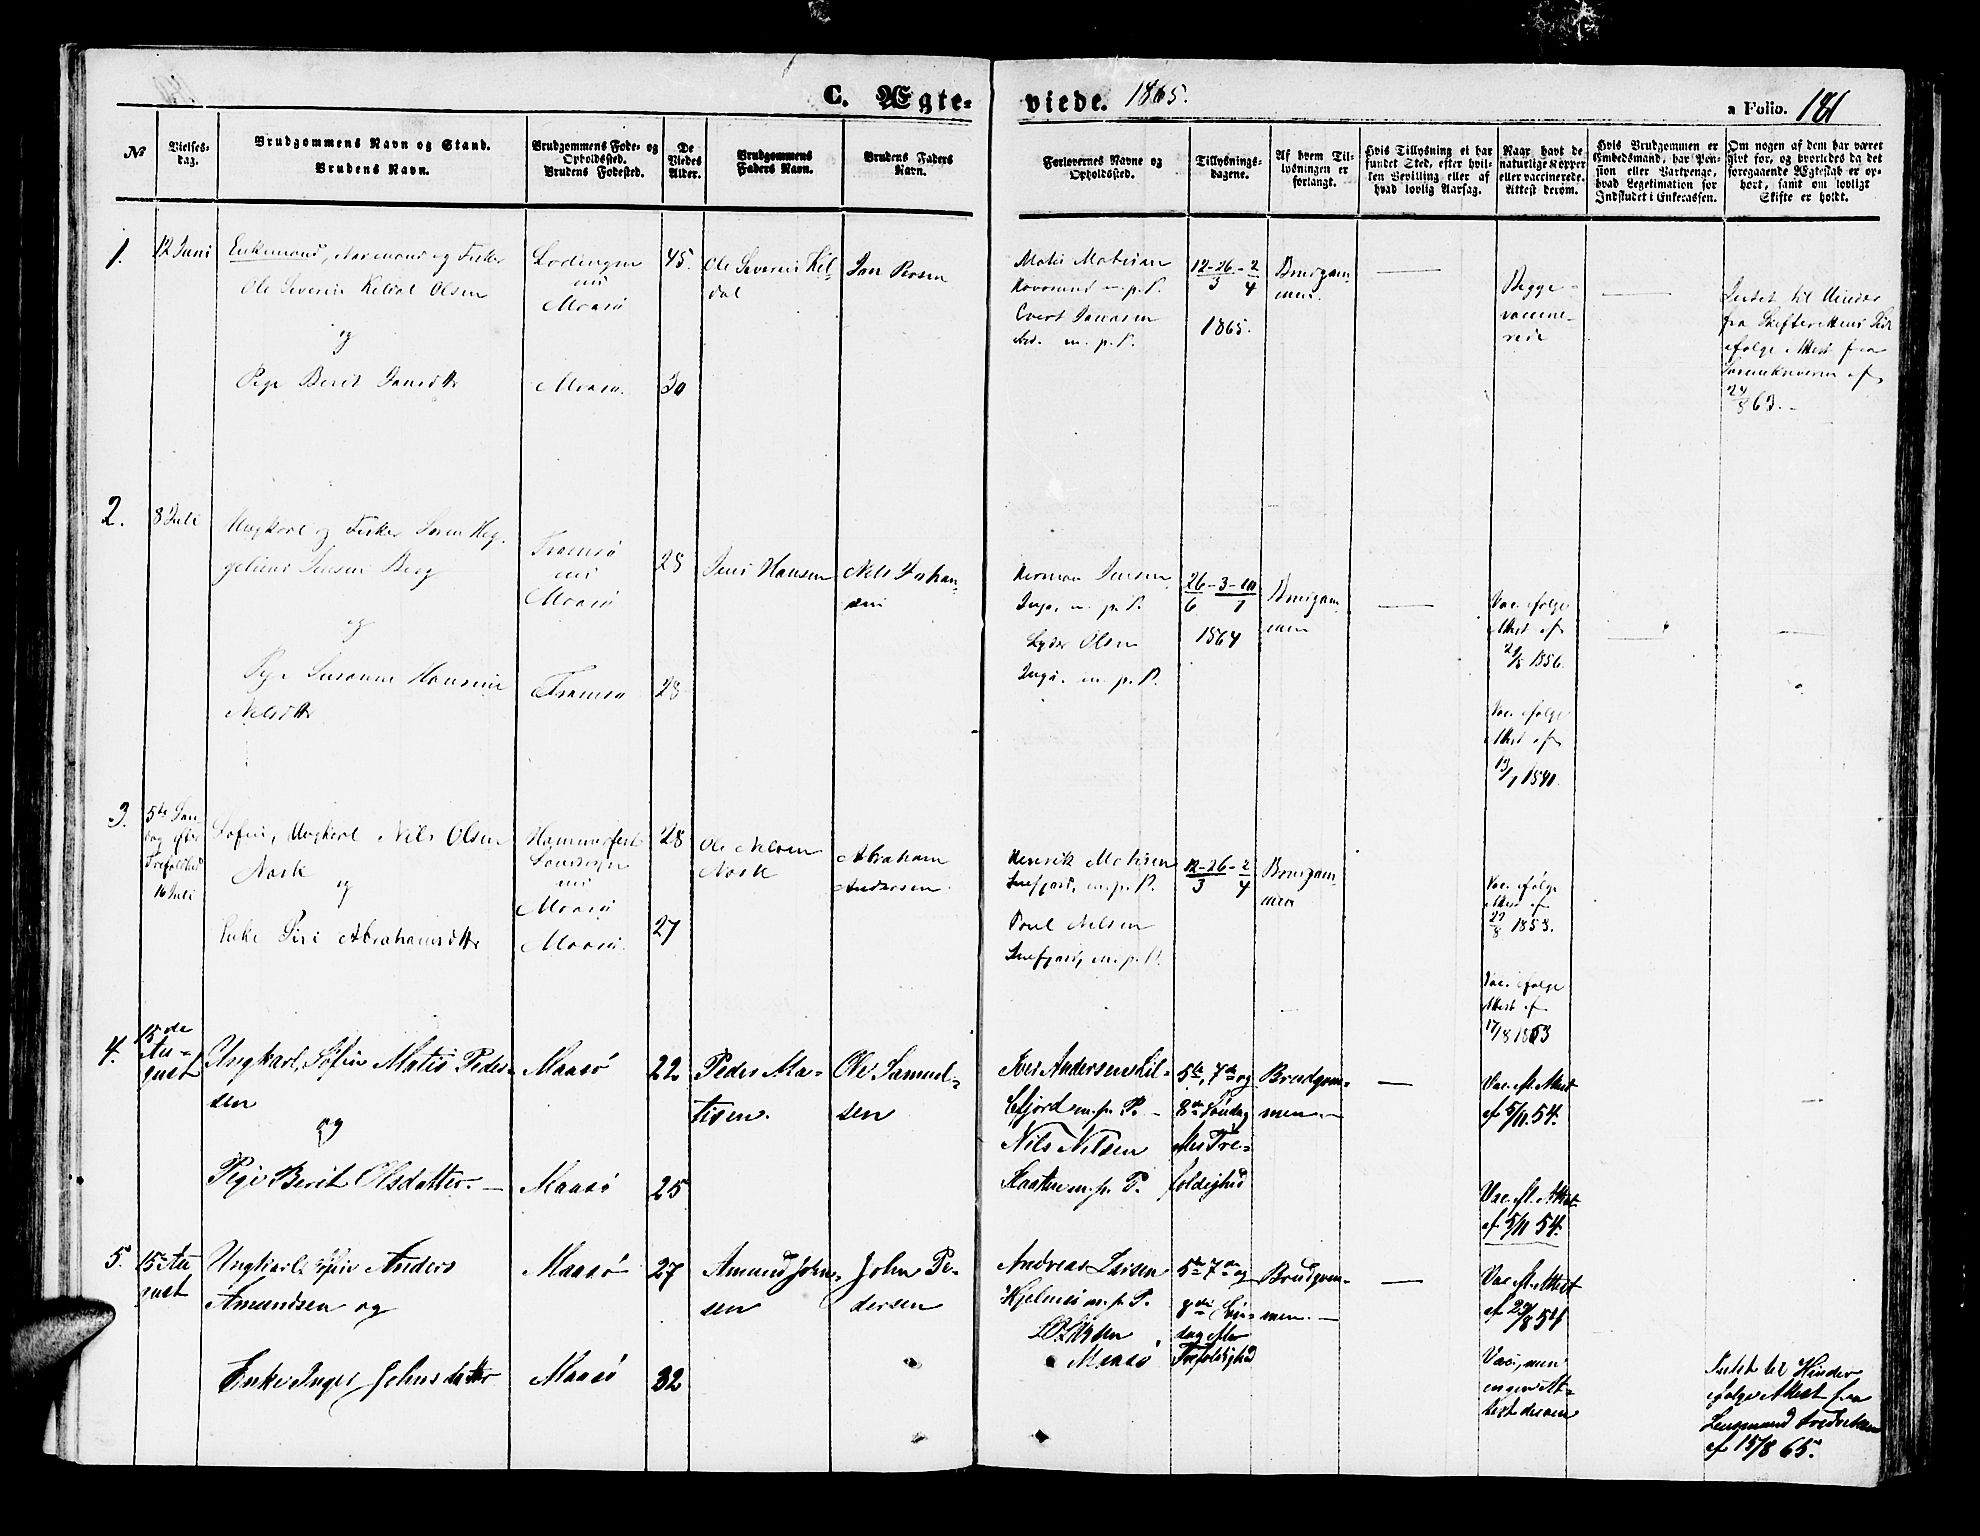 C. Ægte-
viede. 1865.
a Folio. 181
№
Vielses-
dag.
Brudgommens Navn og Stand.
Brudens Navn.
Brudgommens Føde- og
Opholdssted.
Brudens Fødested.
De
Viedes
Alder.
Brudgommens
Faders Navn.
Brudens Faders
Navn.
Forlovernes Navne og
Opholdssted.
Tillysnings-
dagene.
Af hvem Til-
lysningen er
forlangt.
Hvis Tillysning ei har
fundet Sted, efter hvil-
ken Bevilling eller af
hvad lovlig Aarsag.
Naar havt de
naturlige Kopper
eller vaccinerede.
Attest derom.
Hvis Brudgommen er
Embedsmand, har Pen-
sion eller Vartpenge,
hvad Legitimation for
Indskudet i Enkecassen.
Om nogen af dem har været
givt for, og hvorledes da det
foregaaende Ægteskab er op-
hørt, samt om lovligt
Skifte er holdt.
1.
12 Juni
Enkemand, Normand og Fisker
Ole Severin Keldal Olsen
og
Pige Berit Jansdttr
Lodingen
nu
Maasø
Maasø.
45.
30
Ole Severin Kel-
dal
Jan Persen
Matis Matisen
Havøsund m. p. P.
Evert Jansen
m. p. P.
12-26-2
3 4
1865.
Brudgom-
men.
Begge
vaccine-
rede
Intet til Hinder
fra Skifterettens Side
ifølge Attest fra
Sorenskriveren af
24/8 63.
2.
8 Juli
Ungkarl og Fisker Søren Heg-
gelund Jensen Berg
og
Pige Susanne Hansine
Nelsdttr
Tromsø
nu
Maasø
Tromsø
28
28
Jens Hansen
Nels Johan-
sen
Herman Jensen
Ingø, m. p. P.
Lyder Olsen
Ingø. m. p. P.
26-3-10
6 7
1864
Brudgom-
men
Vac. ifølge
Attest af
29/8 1856.
Vac. ifølge
Attest af
13/7 1840.
3.
5te Søn-
dag efter
Trefoldhed
16 Juli
Søfin, Ungkarl Nils Olsen
Nask
og
Enke Siri Abrahamsdttr
Hammerfest
Landsogn
nu
Maasø
Maasø.
28
27
Ole Nilsen
Nask
Abraham
Andersen.
Henrik Matisen
Snefjord, m. p. P.
Poul Nilsen
Snefjord, m. p. P.
12-26-2
3 4
Brudgom-
men
Vac. ifølge
Attest af
29/8 1853.
Vac. ifølge
Attest af
17/8 1863
4.
15de
Au-
gust
Ungkarl, Søfin Matis Peder-
sen
og
Pige Berit Olsdatter.
Maasø
Maasø
22
25
Peder Ma-
tisen.
Ole Samuel-
sen
Iver Andersen Lil-
lefjord m. p. P.
Nils Nilsen
m. p. P.
5te, 7de og
8de Søndag
efter Tre-
foldighed
Brudgom-
men.
Vac. Attest
af 5/11. 54.
Vac. Attest
af 5/11 54.
5.
15 Au-
gust
Ungkarl, Søfin Anders
Amundsen og
Enke Inger Johnsdatter
Maasø
Maasø
27
32
Amund John-
sen
John Pe-
dersen
Andreas Larsen
Hjelmsø m. p. P.
Maasø
5te 7de og
8de Søn-
dag efter
Trefoldighed
Brudgom-
men.
Vac. Attest
af 29/8 54
Vac., men
ingen At-
test derom
Intet til Hinder
ifølge Attest fra
Lensmand Fredriksen
af 15/8 65.